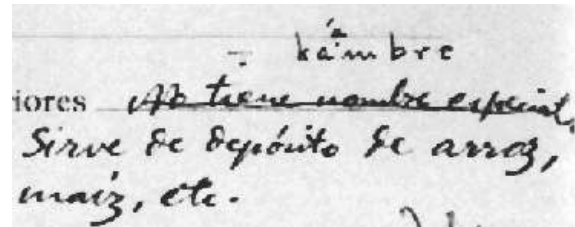 ÷ kambre
iores No tiene nombre especial.
Sirve de depósito de arroz,
maíz, etc.